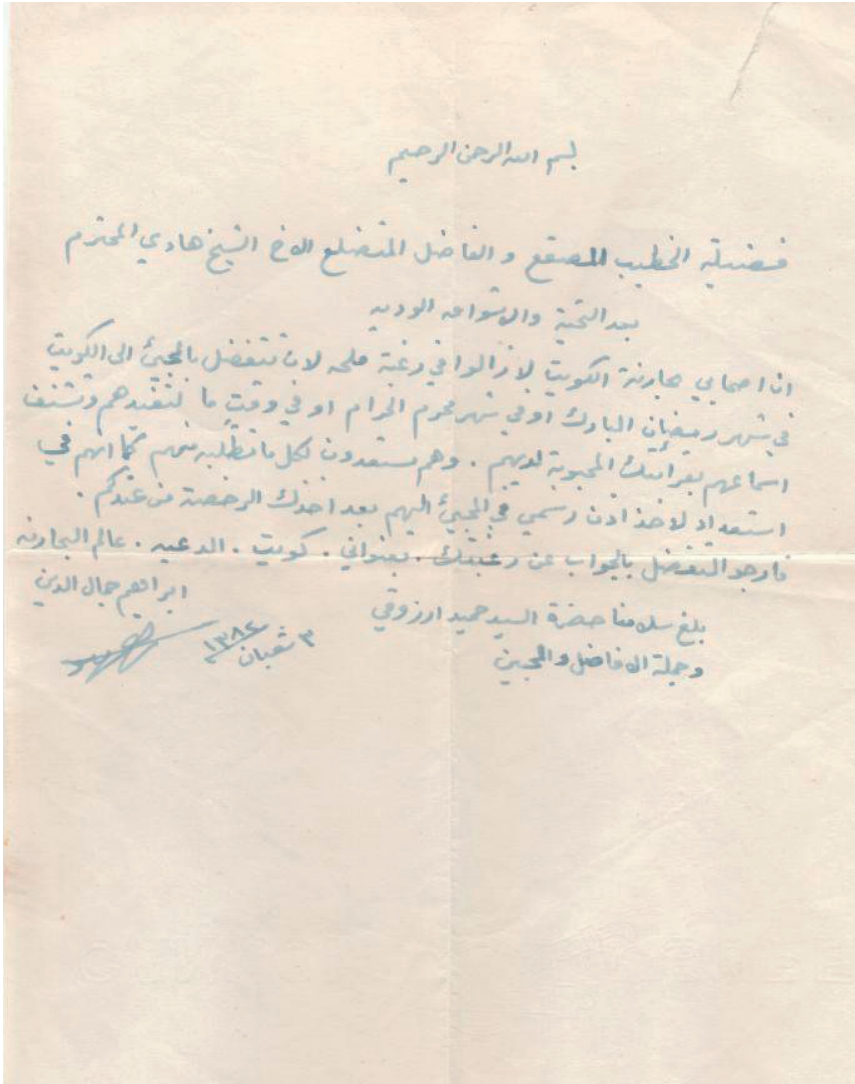 بسم الله الرحمن الرحيم
فضيلة الخطيب المصقع والفاضل المتضلع الاخ الشيخ هادي المحترم
بعد التحية والاشواق الودية
ان اصحابي بحارنة الكويت لا زالوا في رغبة ملحه لان تتفضل بالمجئ الى الكويت
في شهر رمضان المبارك او في شهر محرم الحرام او في وقت ما لتفيدهم وتشنف
اسماعهم بقرائتك المحبوبة لديهم . وهم مستعدون لكل ما تطلبه منهم كما انهم في
استعداد لاخذ اذن رسمي في المجئ اليهم بعد اخذك الرخصة من عندكم .
فارجو التفضل بالجواب عن رغبتك . بعنواني . كويت . الدعيه . عالم البحارنه
ابراهيم جمال الدين
بلغ سلامنا حضرة السيد حميد ارزوقي
وجملة الافاضل والمحبين
٣ شعبان ١٣٨٢